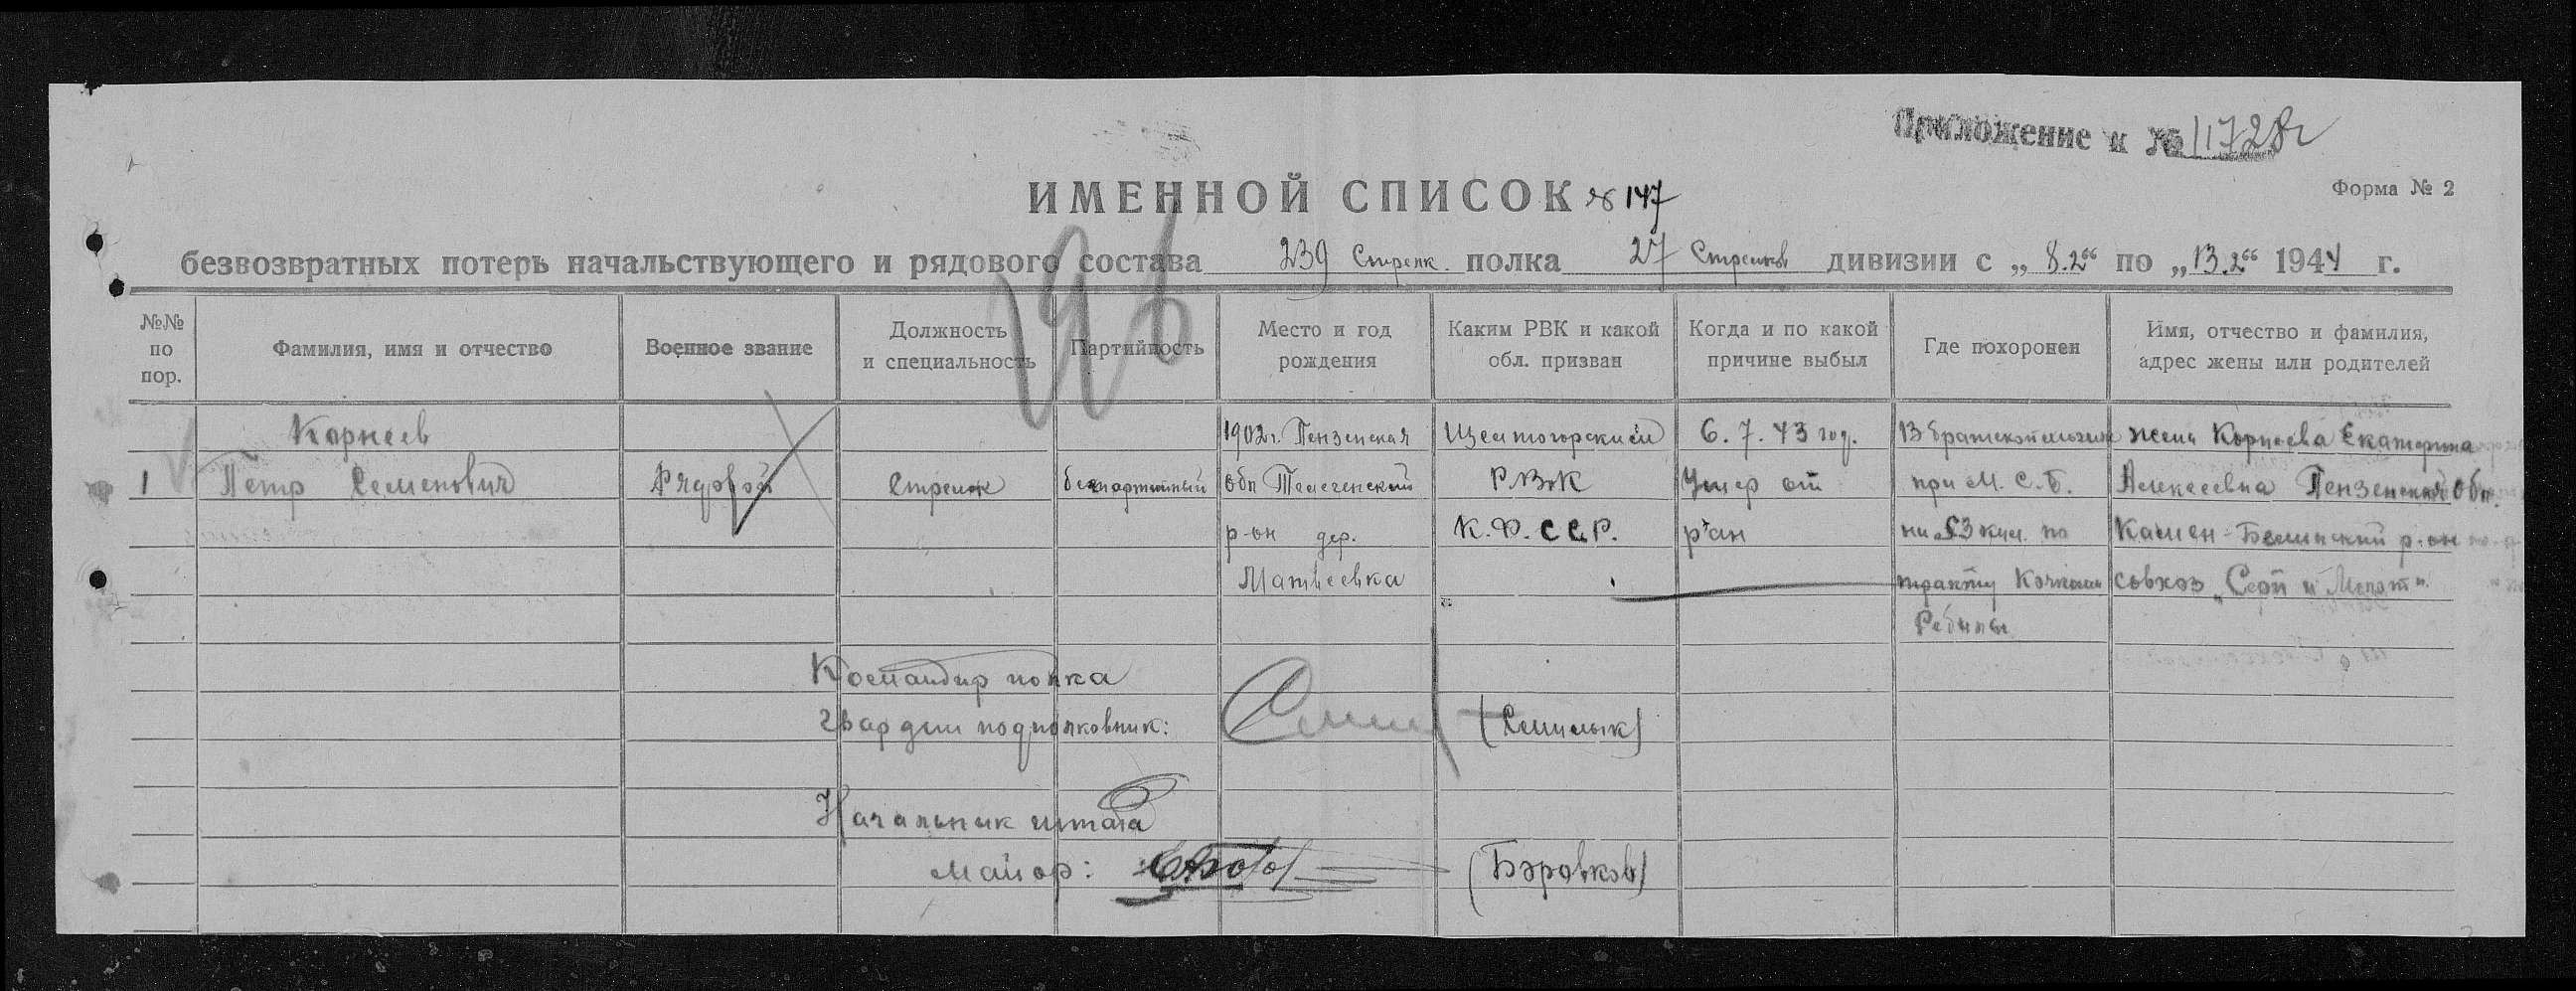 Приложение к № 11728с
ИМЕННОЙ СПИСОК № 147
Форма № 2
безвозвратных потерь начальствующего и рядового состава 239 Стрелк. полка 27 Стрелков дивизии с „ 8.2 “ по „ 13.2 “ 1944 г.
№№ по пор.
Фамилия, имя и отчество
Военное звание
Должность и специальность
Партийность
Место и год рождения
Каким РВК и какой обл. призван
Когда и по какой причине выбыл
Где похоронен
Имя, отчество и фамилия, адрес жены или родителей
Корнеев 1902г. Пензенская 6.7.43 год. В братской могиле жена Корнеева Екатерина
1 Петр Семенович Рядовой Стрелок беспартийный обл РВК Умер от при М.С.Б. Алексеевна Пензенская обл.
р-он дер. К.Ф.ССР. ран км. по Камен-Белинский р-он
Матвеевка тракту совхоз „Серп и Молот“.
Командир полка
гвардии подполковник:
Начальник штаба
майор: (Боровков)